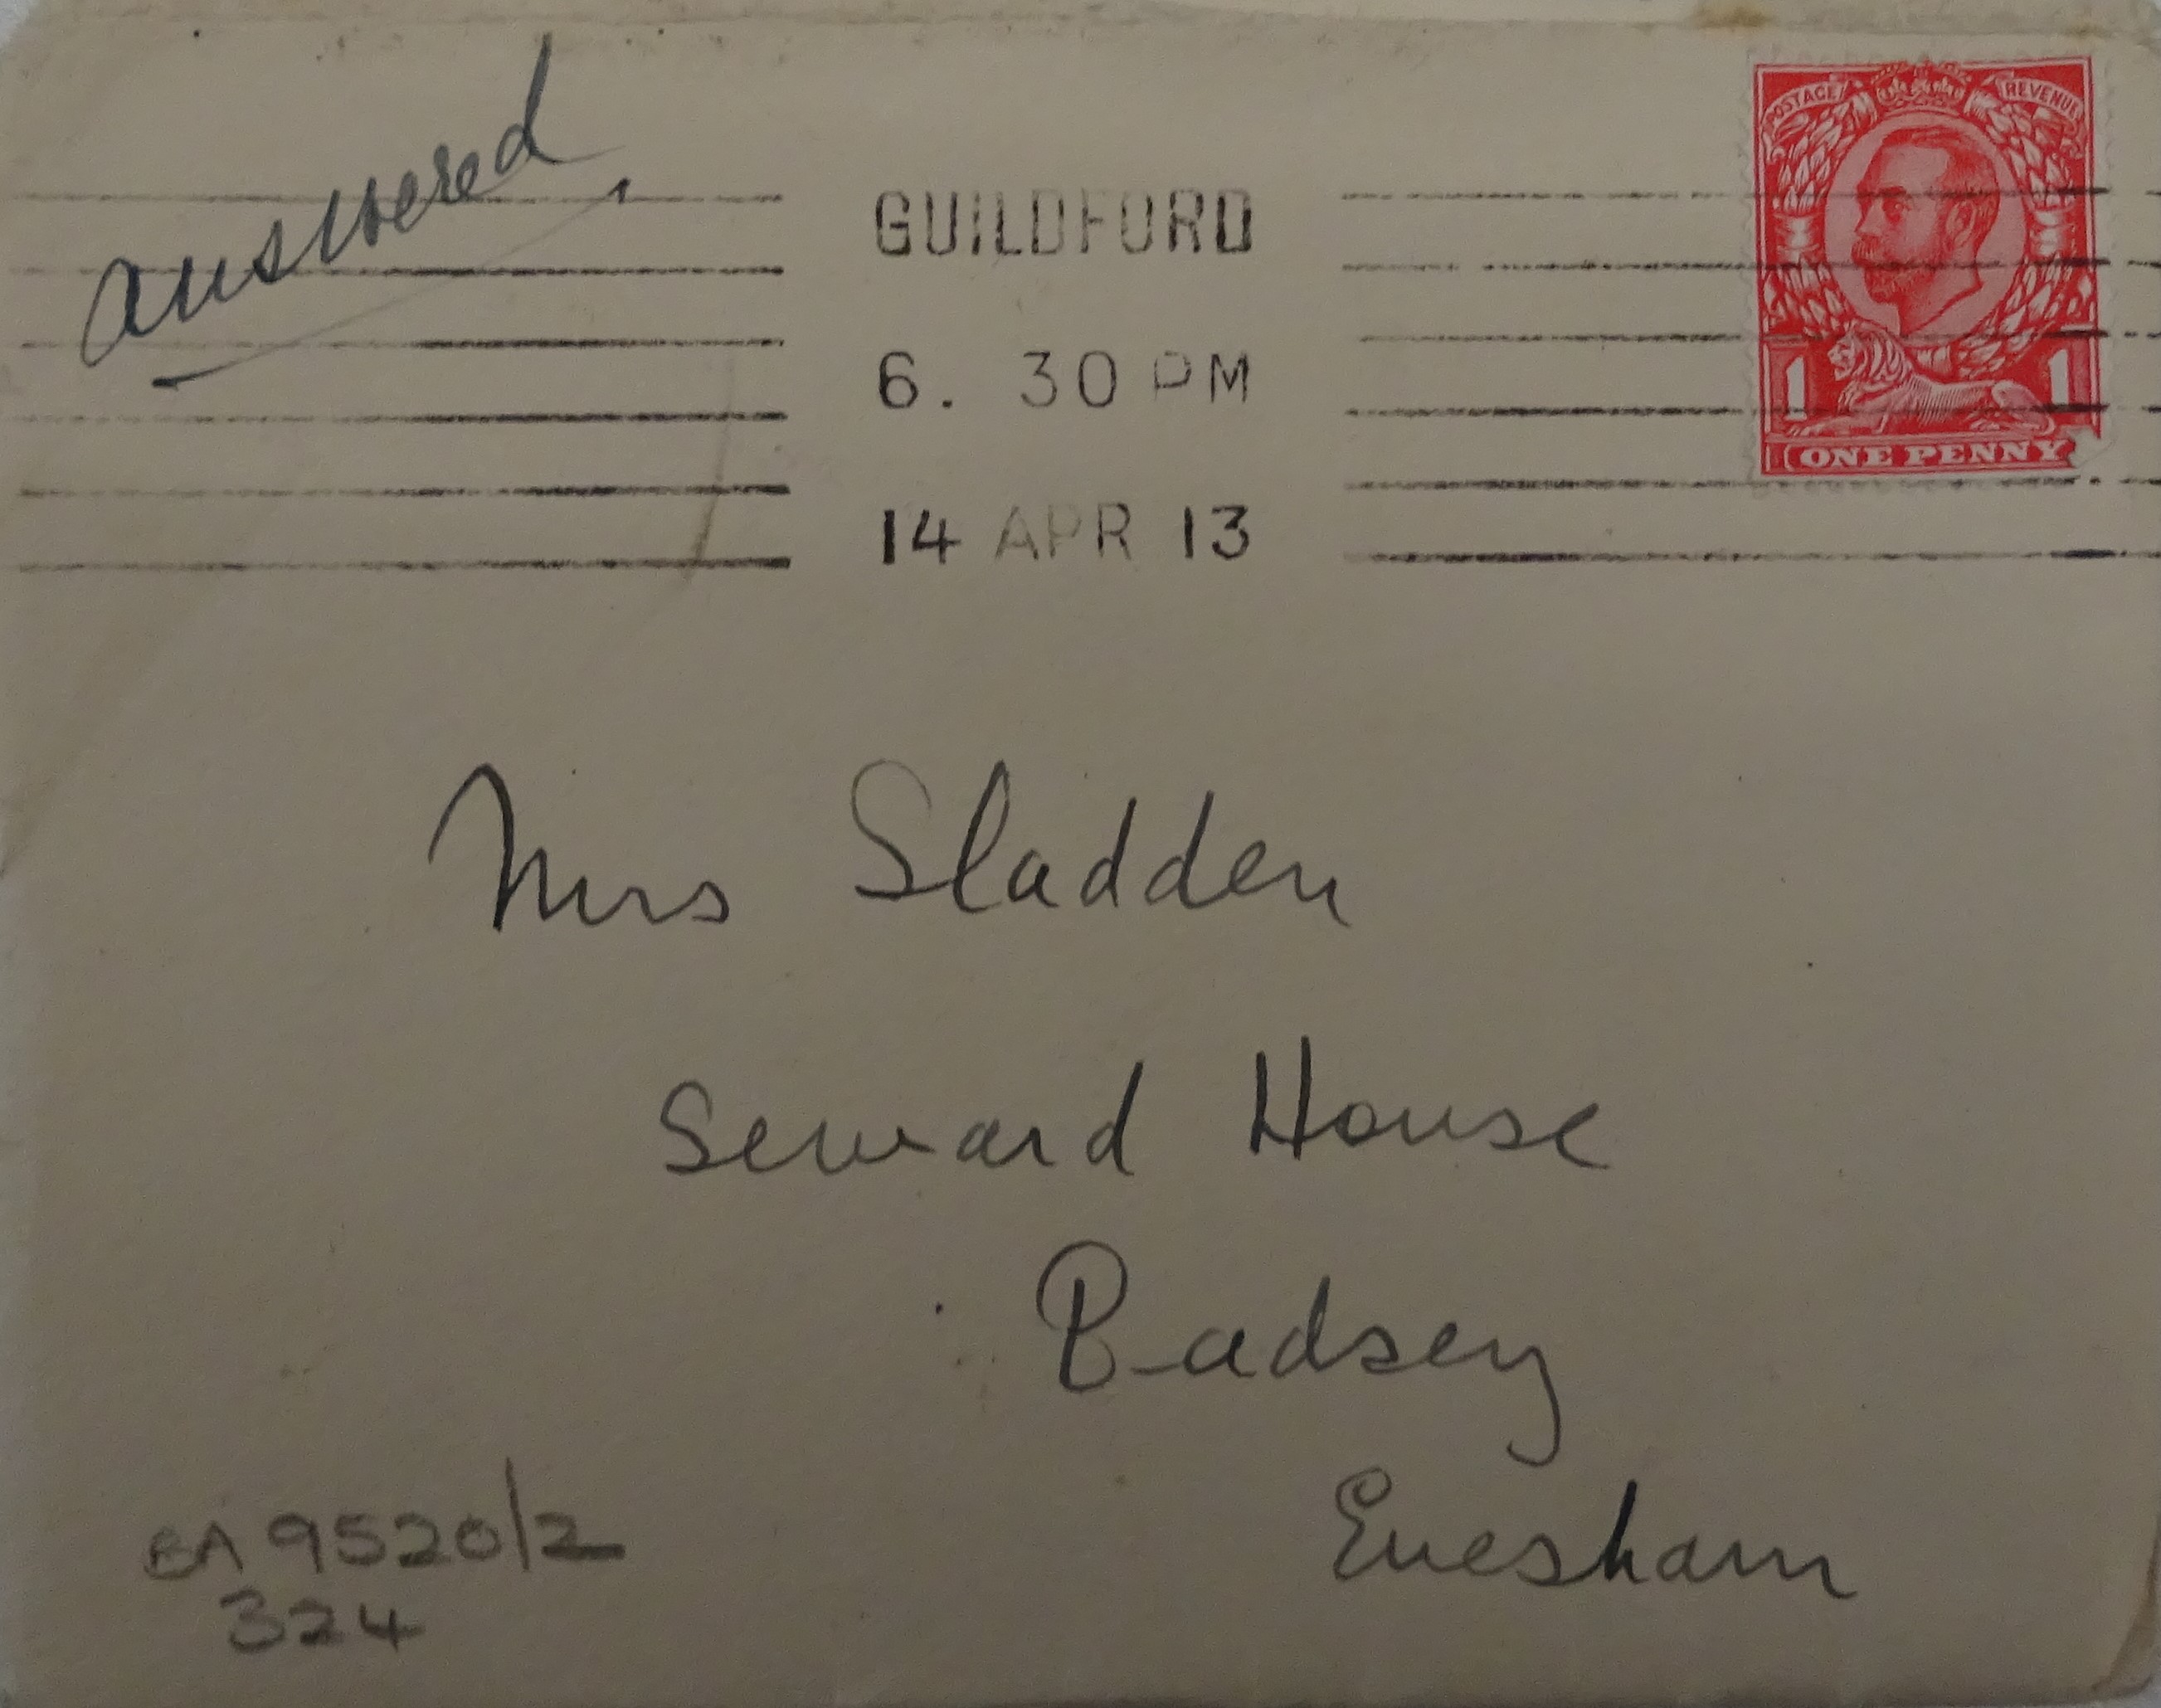 answered
GUILDFORD
6. 30 PM
14 APR 13
POSTAGE REVENUE
1 1
ONE PENNY
Mrs Sladden
Seward House
Badsey
Evesham
BA 9520/2
324